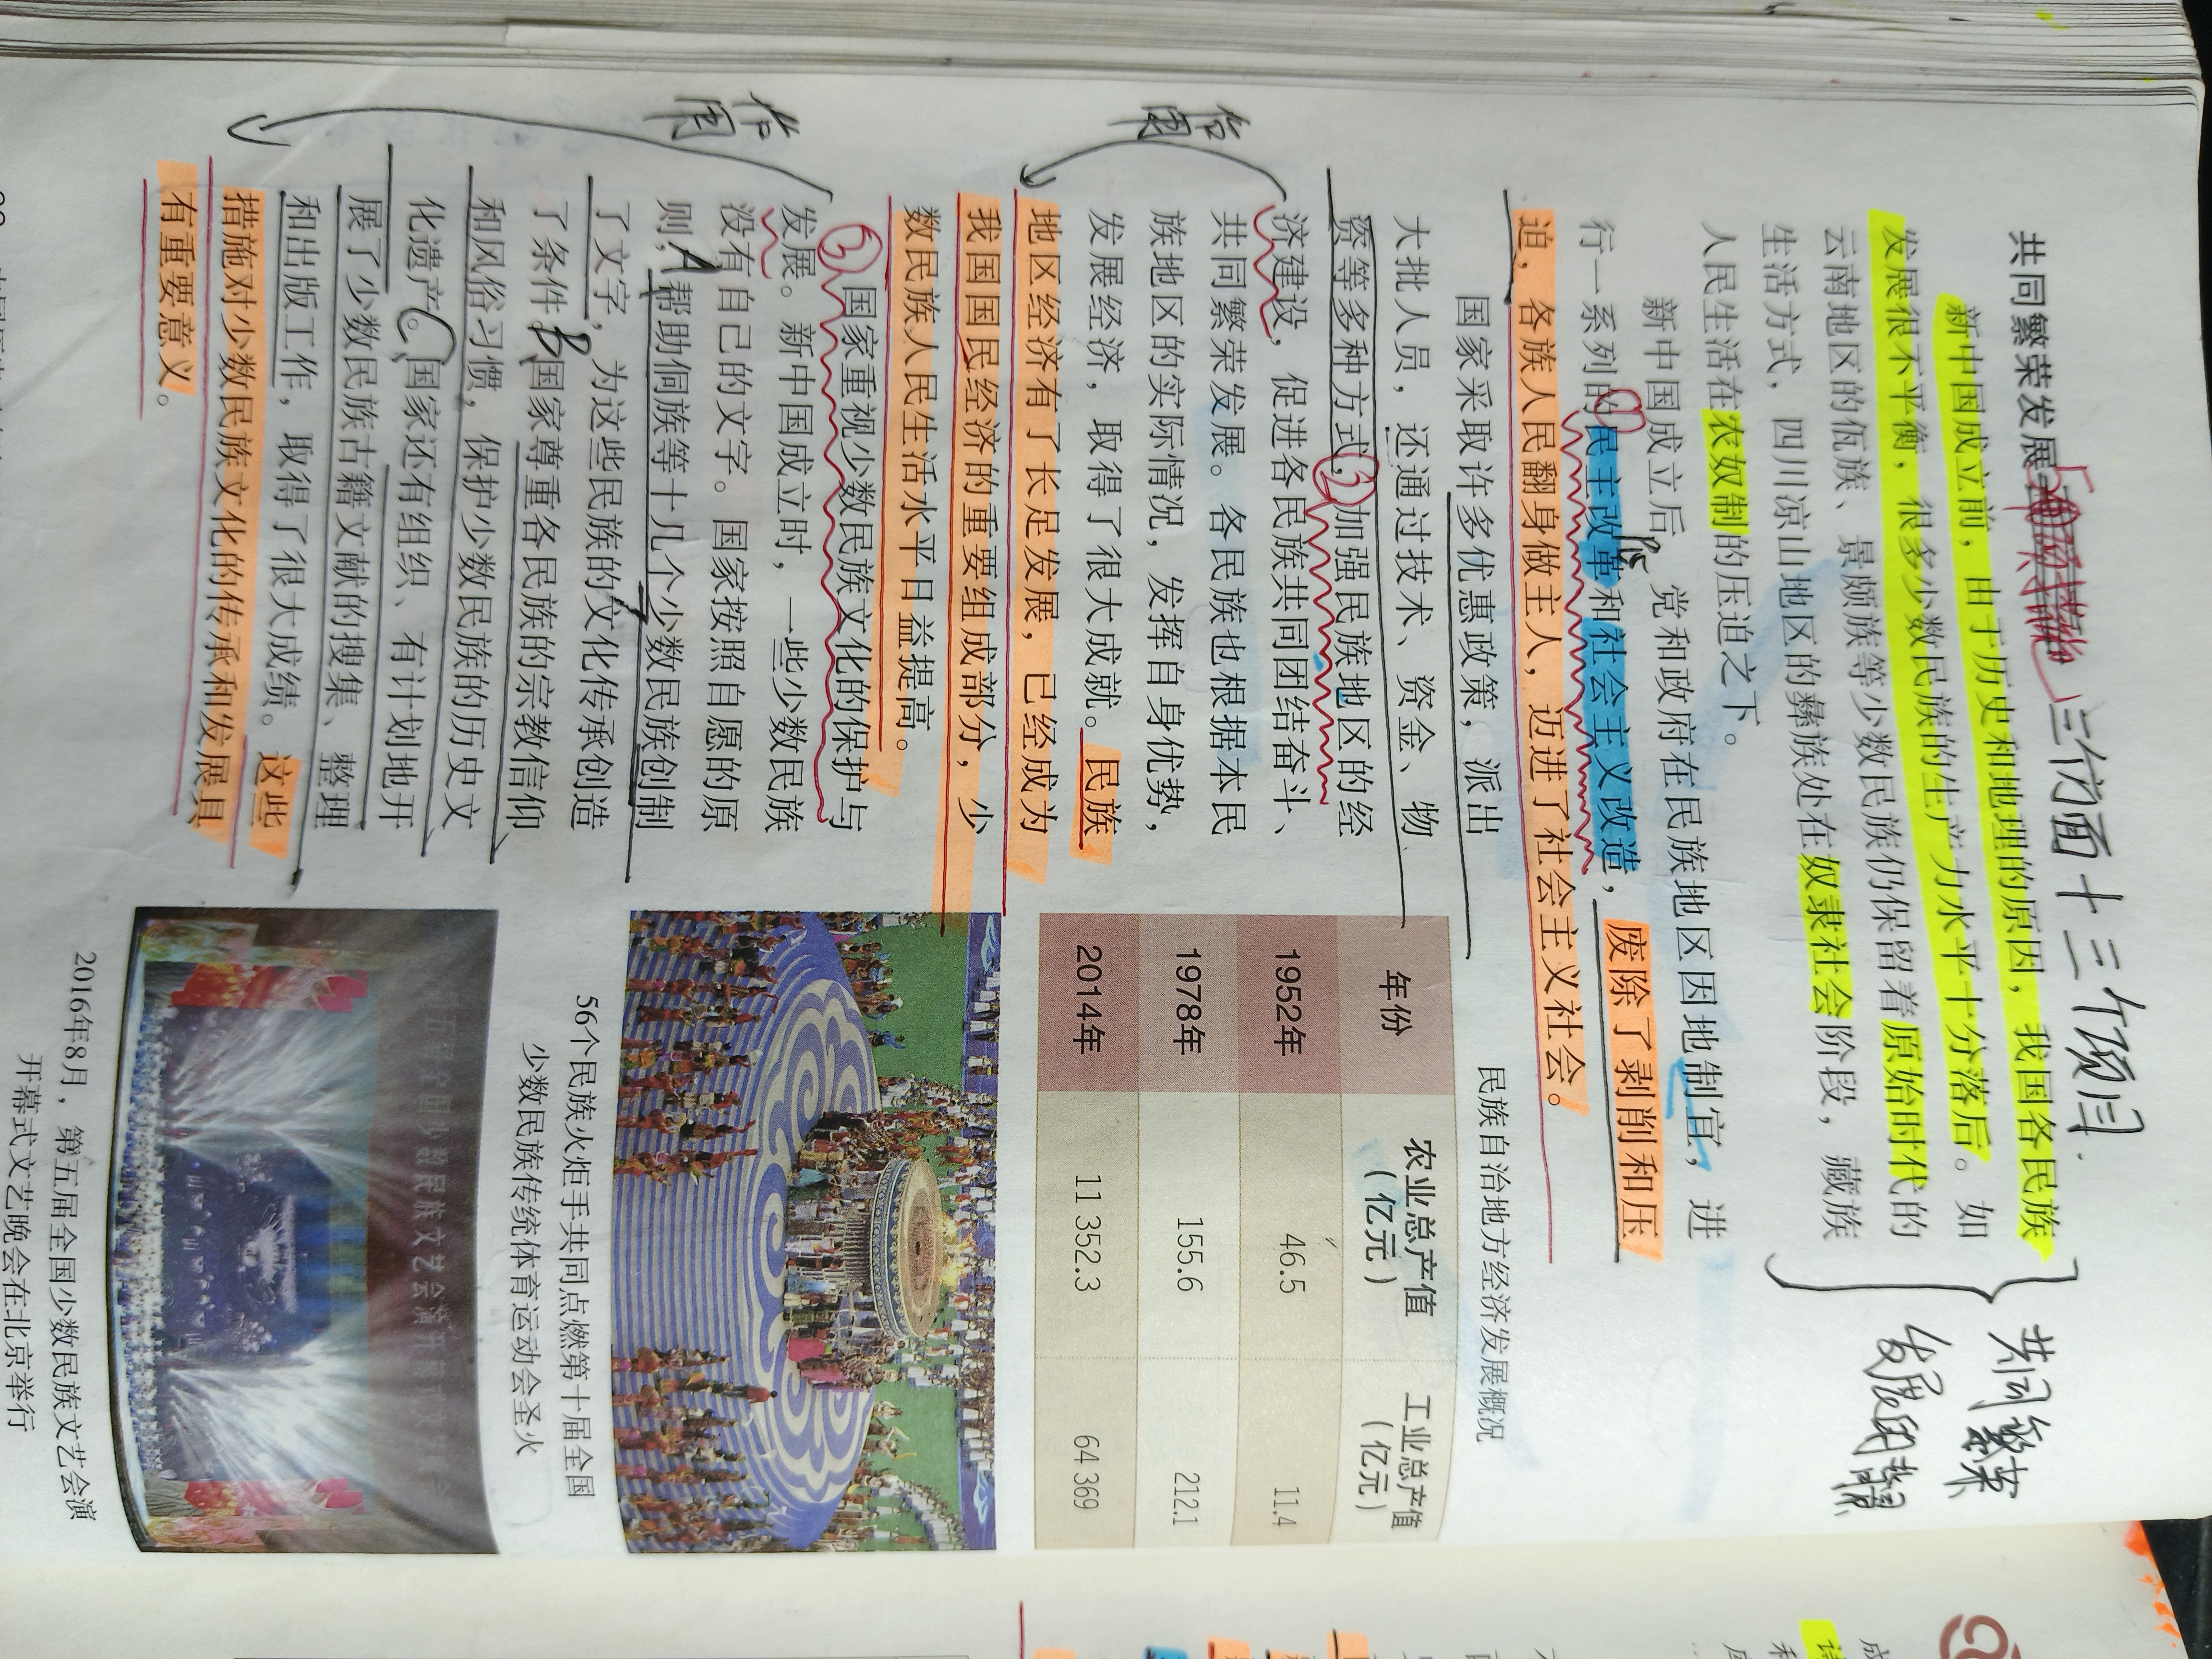 共同繁荣发展
三行面十三个项目.
新中国成立前，由于历史和地理的原因，我国各民族
发展很不平衡，很多少数民族的生产力水平十分落后。如
云南地区的佤族、景颇族等少数民族仍保留着原始时代的
生活方式，四川凉山地区的彝族处在奴隶社会阶段，藏族
人民生活在农奴制的压迫之下。
共同繁荣
发展
新中国成立后，党和政府在民族地区因地制宜，进
行一系列的①民主改革和社会主义改造，废除了剥削和压
迫，各族人民翻身做主人，迈进了社会主义社会。
国家采取许多优惠政策，派出
大批人员，还通过技术、资金、物
资等多种方式，②加强民族地区的经
济建设，促进各民族共同团结奋斗、
共同繁荣发展。各民族也根据本民
族地区的实际情况，发挥自身优势，
发展经济，取得了很大成就。民族
地区经济有了长足发展，已经成为
我国国民经济的重要组成部分，少
数民族人民生活水平日益提高。
作用
③国家重视少数民族文化的保护与
发展。新中国成立时，一些少数民族
没有自己的文字。国家按照自愿的原
则，A帮助侗族等十几个少数民族创制
了文字，为这些民族的文化传承创造
了条件。B国家尊重各民族的宗教信仰
和风俗习惯，保护少数民族的历史文
化遗产。C国家还有组织、有计划地开
展了少数民族古籍文献的搜集、整理
和出版工作，取得了很大成绩。这些
措施对少数民族文化的传承和发展具
有重要意义。
作用
民族自治地方经济发展概况
年份 农业总产值（亿元） 工业总产值（亿元）
1952年 46.5 11.4
1978年 155.6 212.1
2014年 11 352.3 64 369
56个民族火炬手共同点燃第十届全国
少数民族传统体育运动会圣火
2016年8月，第五届全国少数民族文艺会演
开幕式文艺晚会在北京举行